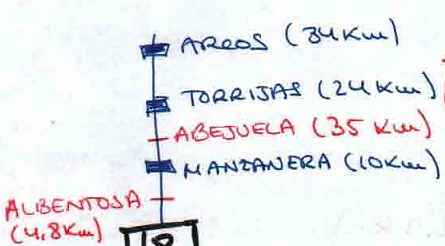 ARCOS (34Km)
TORRIJAS (24Km)
ABEJUELA (35 Km)
MANZANERA (10Km)
ALBENTOSA
(4,8Km)